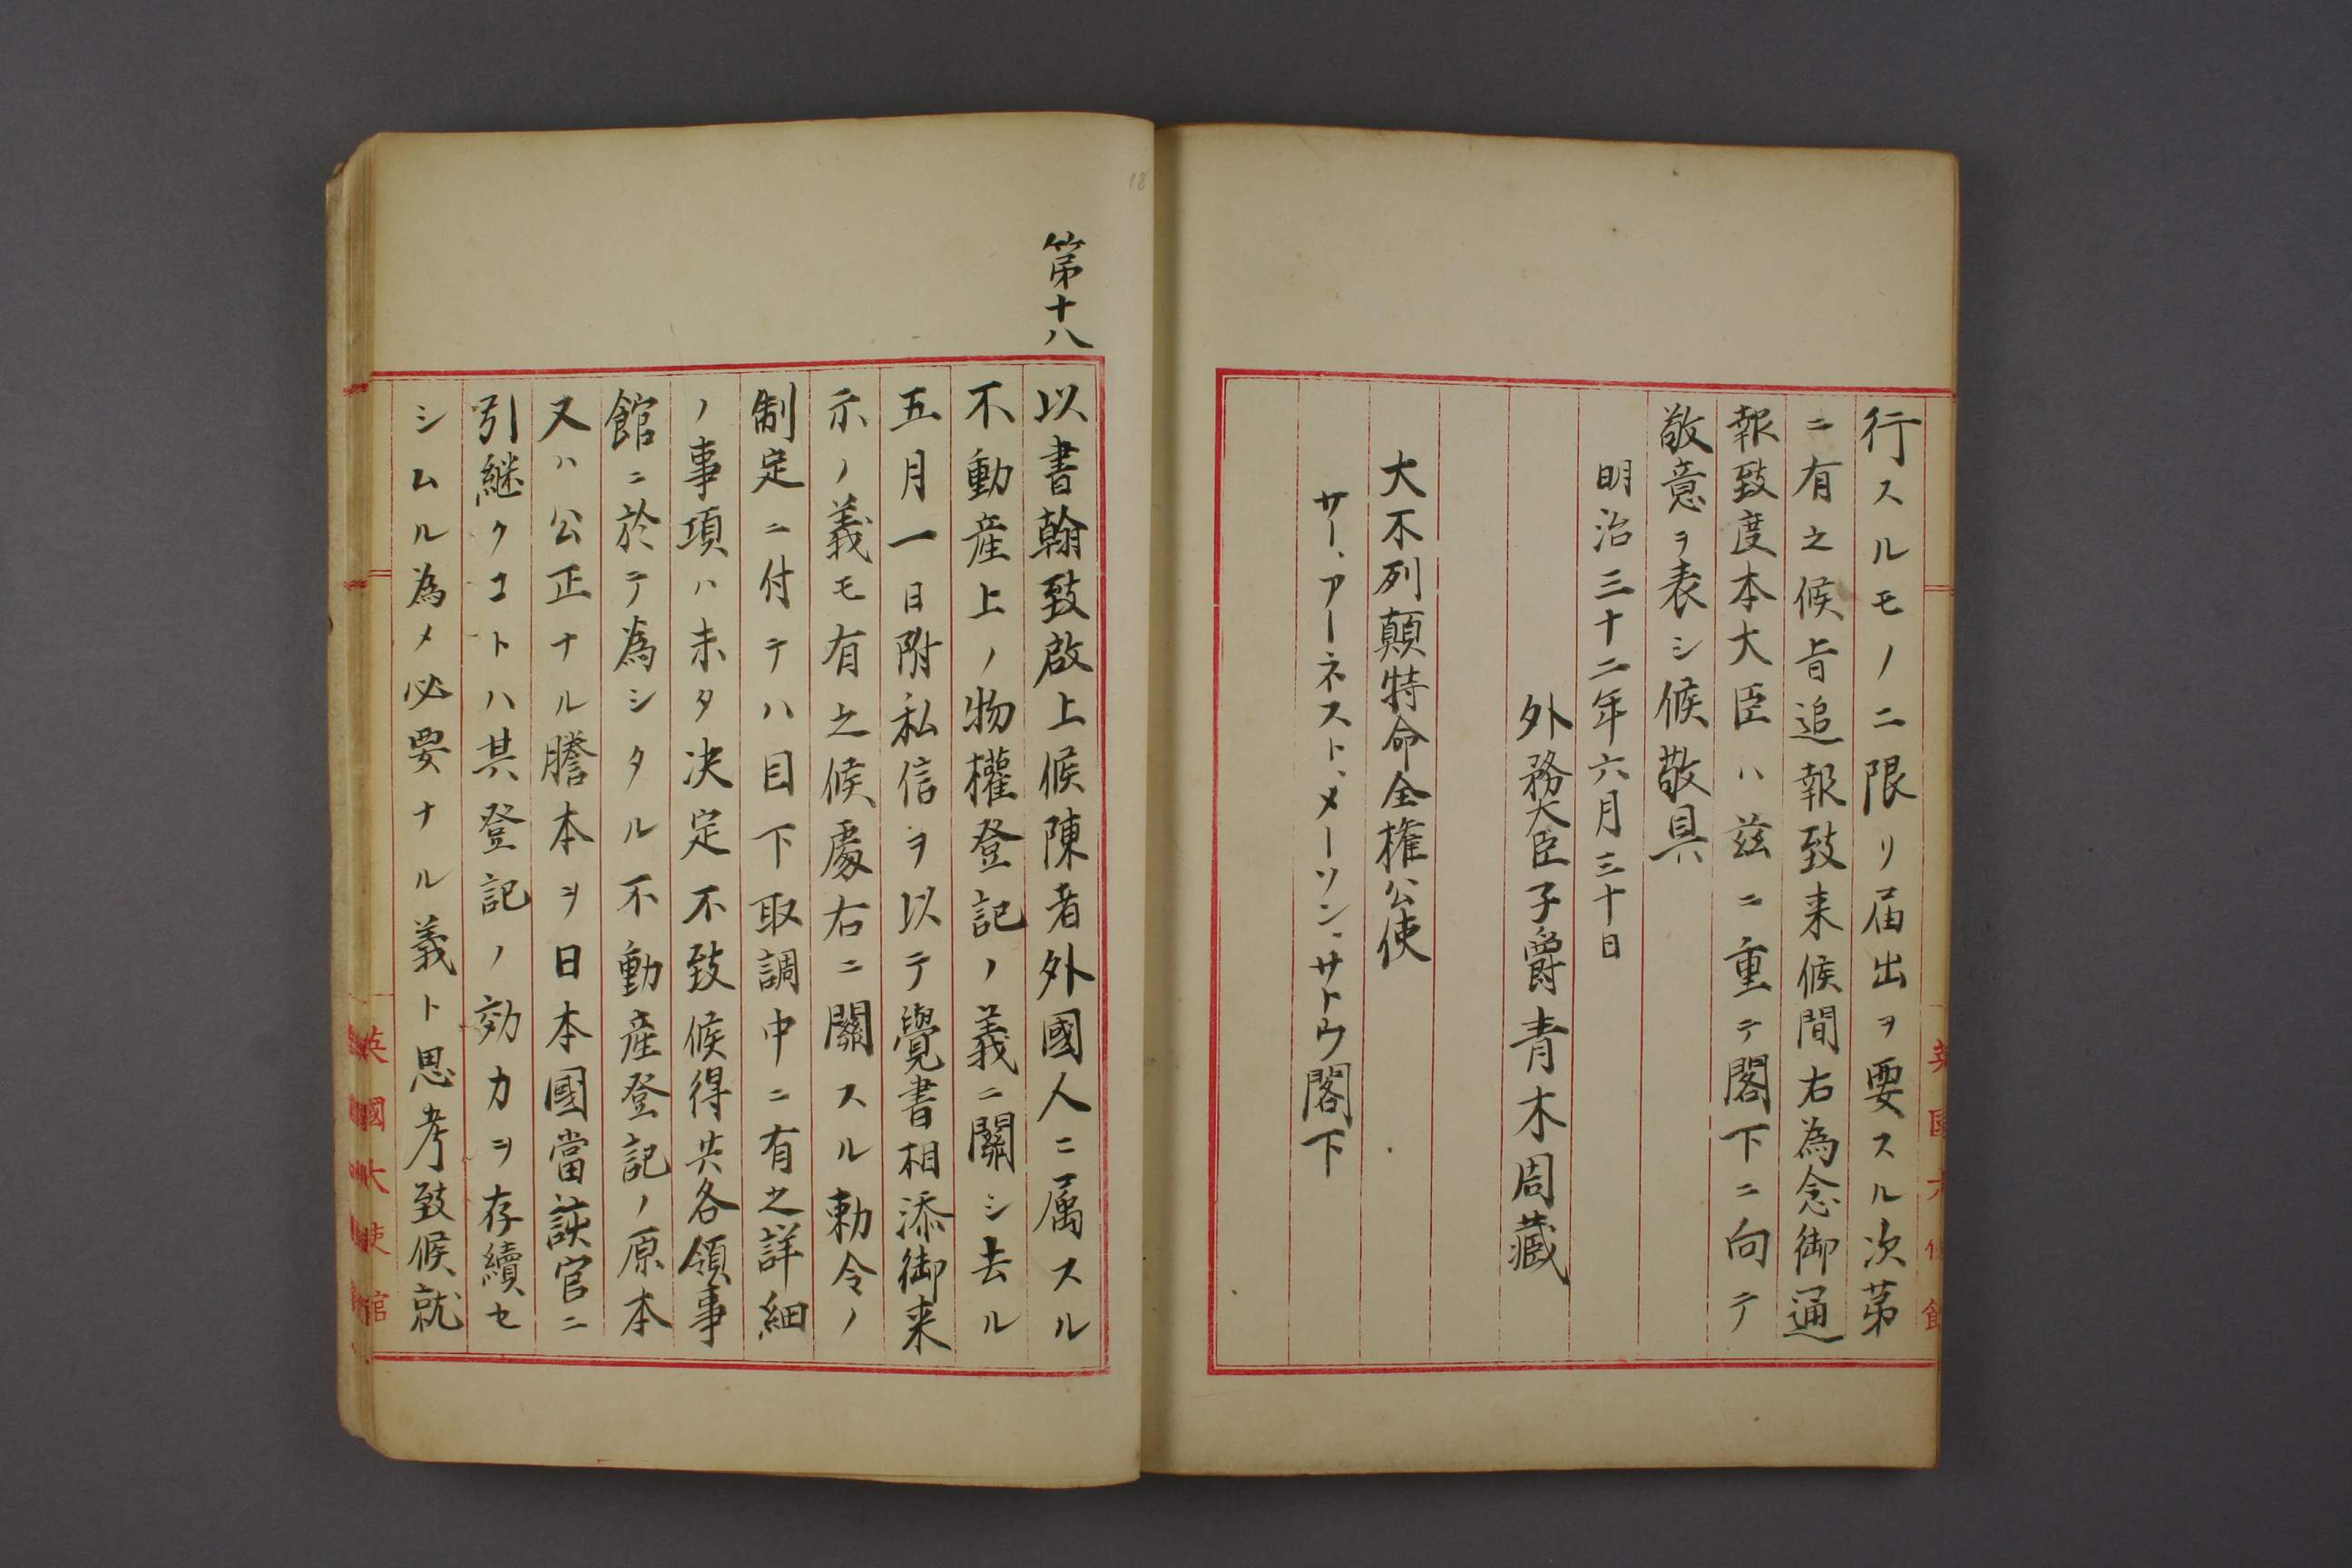 行スルモノニ限リ届出ヲ要スル次第
ニ有之候旨追報致来候間右為念御通
報致度本大臣ハ茲ニ重テ閣下ニ向テ
敬意ヲ表シ候敬具
明治三十二年六月三十日
外務大臣子爵青木周藏
大不列顛特命全権公使
サー、アーネスト、メーソン、サトウ閣下
18
第十八
以書翰致啟上候陳者外國人ニ属スル
不動産上ノ物權登記ノ義ニ關シ去ル
五月一日附私信ヲ以テ覺書相添御来
示ノ義モ有之候處右ニ關スル勅令ノ
制定ニ付テハ目下取調中ニ有之詳細
ノ事項ハ未タ決定不致候得共各領事
館ニ於テ為シタル不動産登記ノ原本
又ハ公正ナル謄本ヲ日本國當該官ニ
引継クコトハ其登記ノ効力ヲ存續セ
シムル為メ必要ナル義ト思考致候就
英國大使館